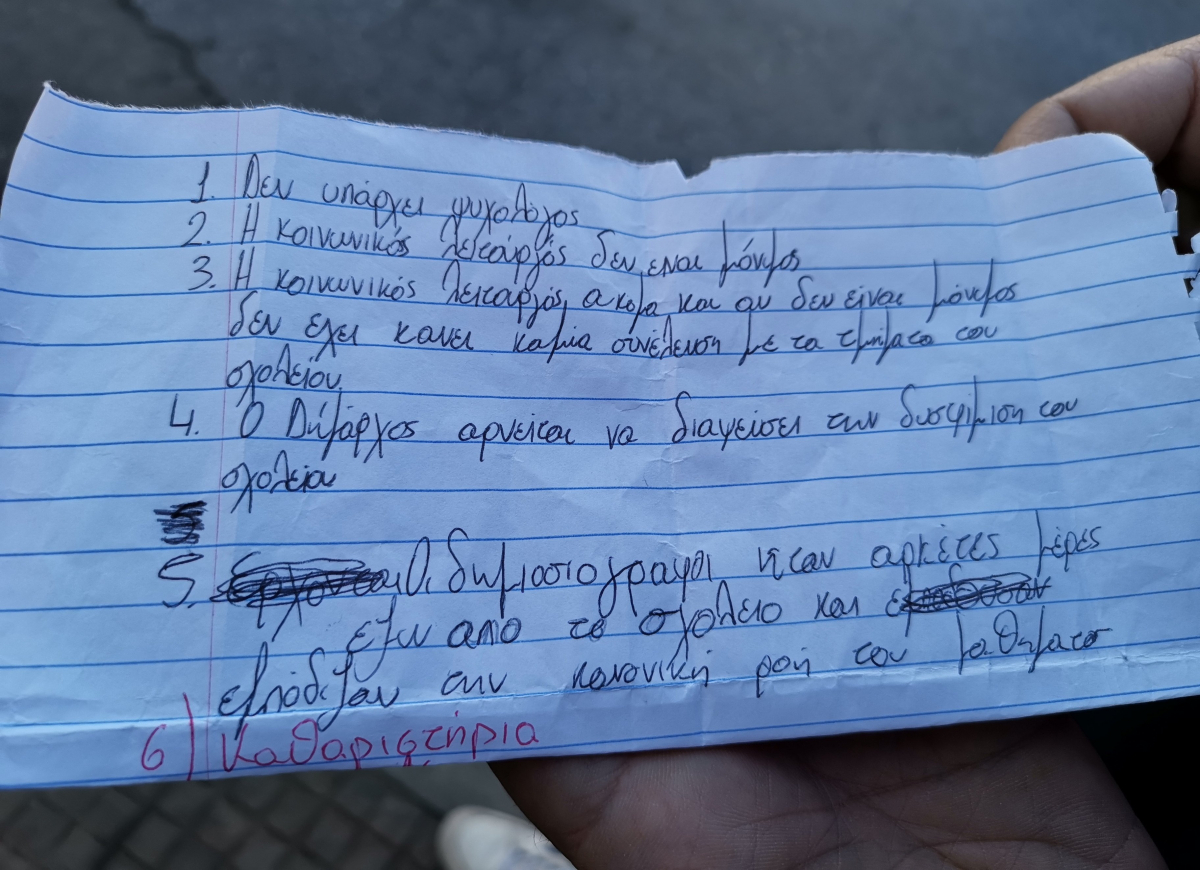 1. Δεν υπάρχει ψυχολόγος
2. Η κοινωνικός λειτουργός δεν ειναι μόνιμος
3. Η κοινωνικός λειτουργός, ακομα και αν δεν είναι μόνιμος
δεν εχει κανει καμια συνέλευση με τα τμήματα του
σχολείου
4. Ο Δήμαρχος αρνείται να διαψεύσει την δυσφήμιση του
σχολείου
5. Οι δημοσιογραφοι ηταν αρκετες μέρες
εξω απο το σχολειο και
εμπόδιζαν την κανονική ροή του μαθηματος
6) Καθαριστήρια